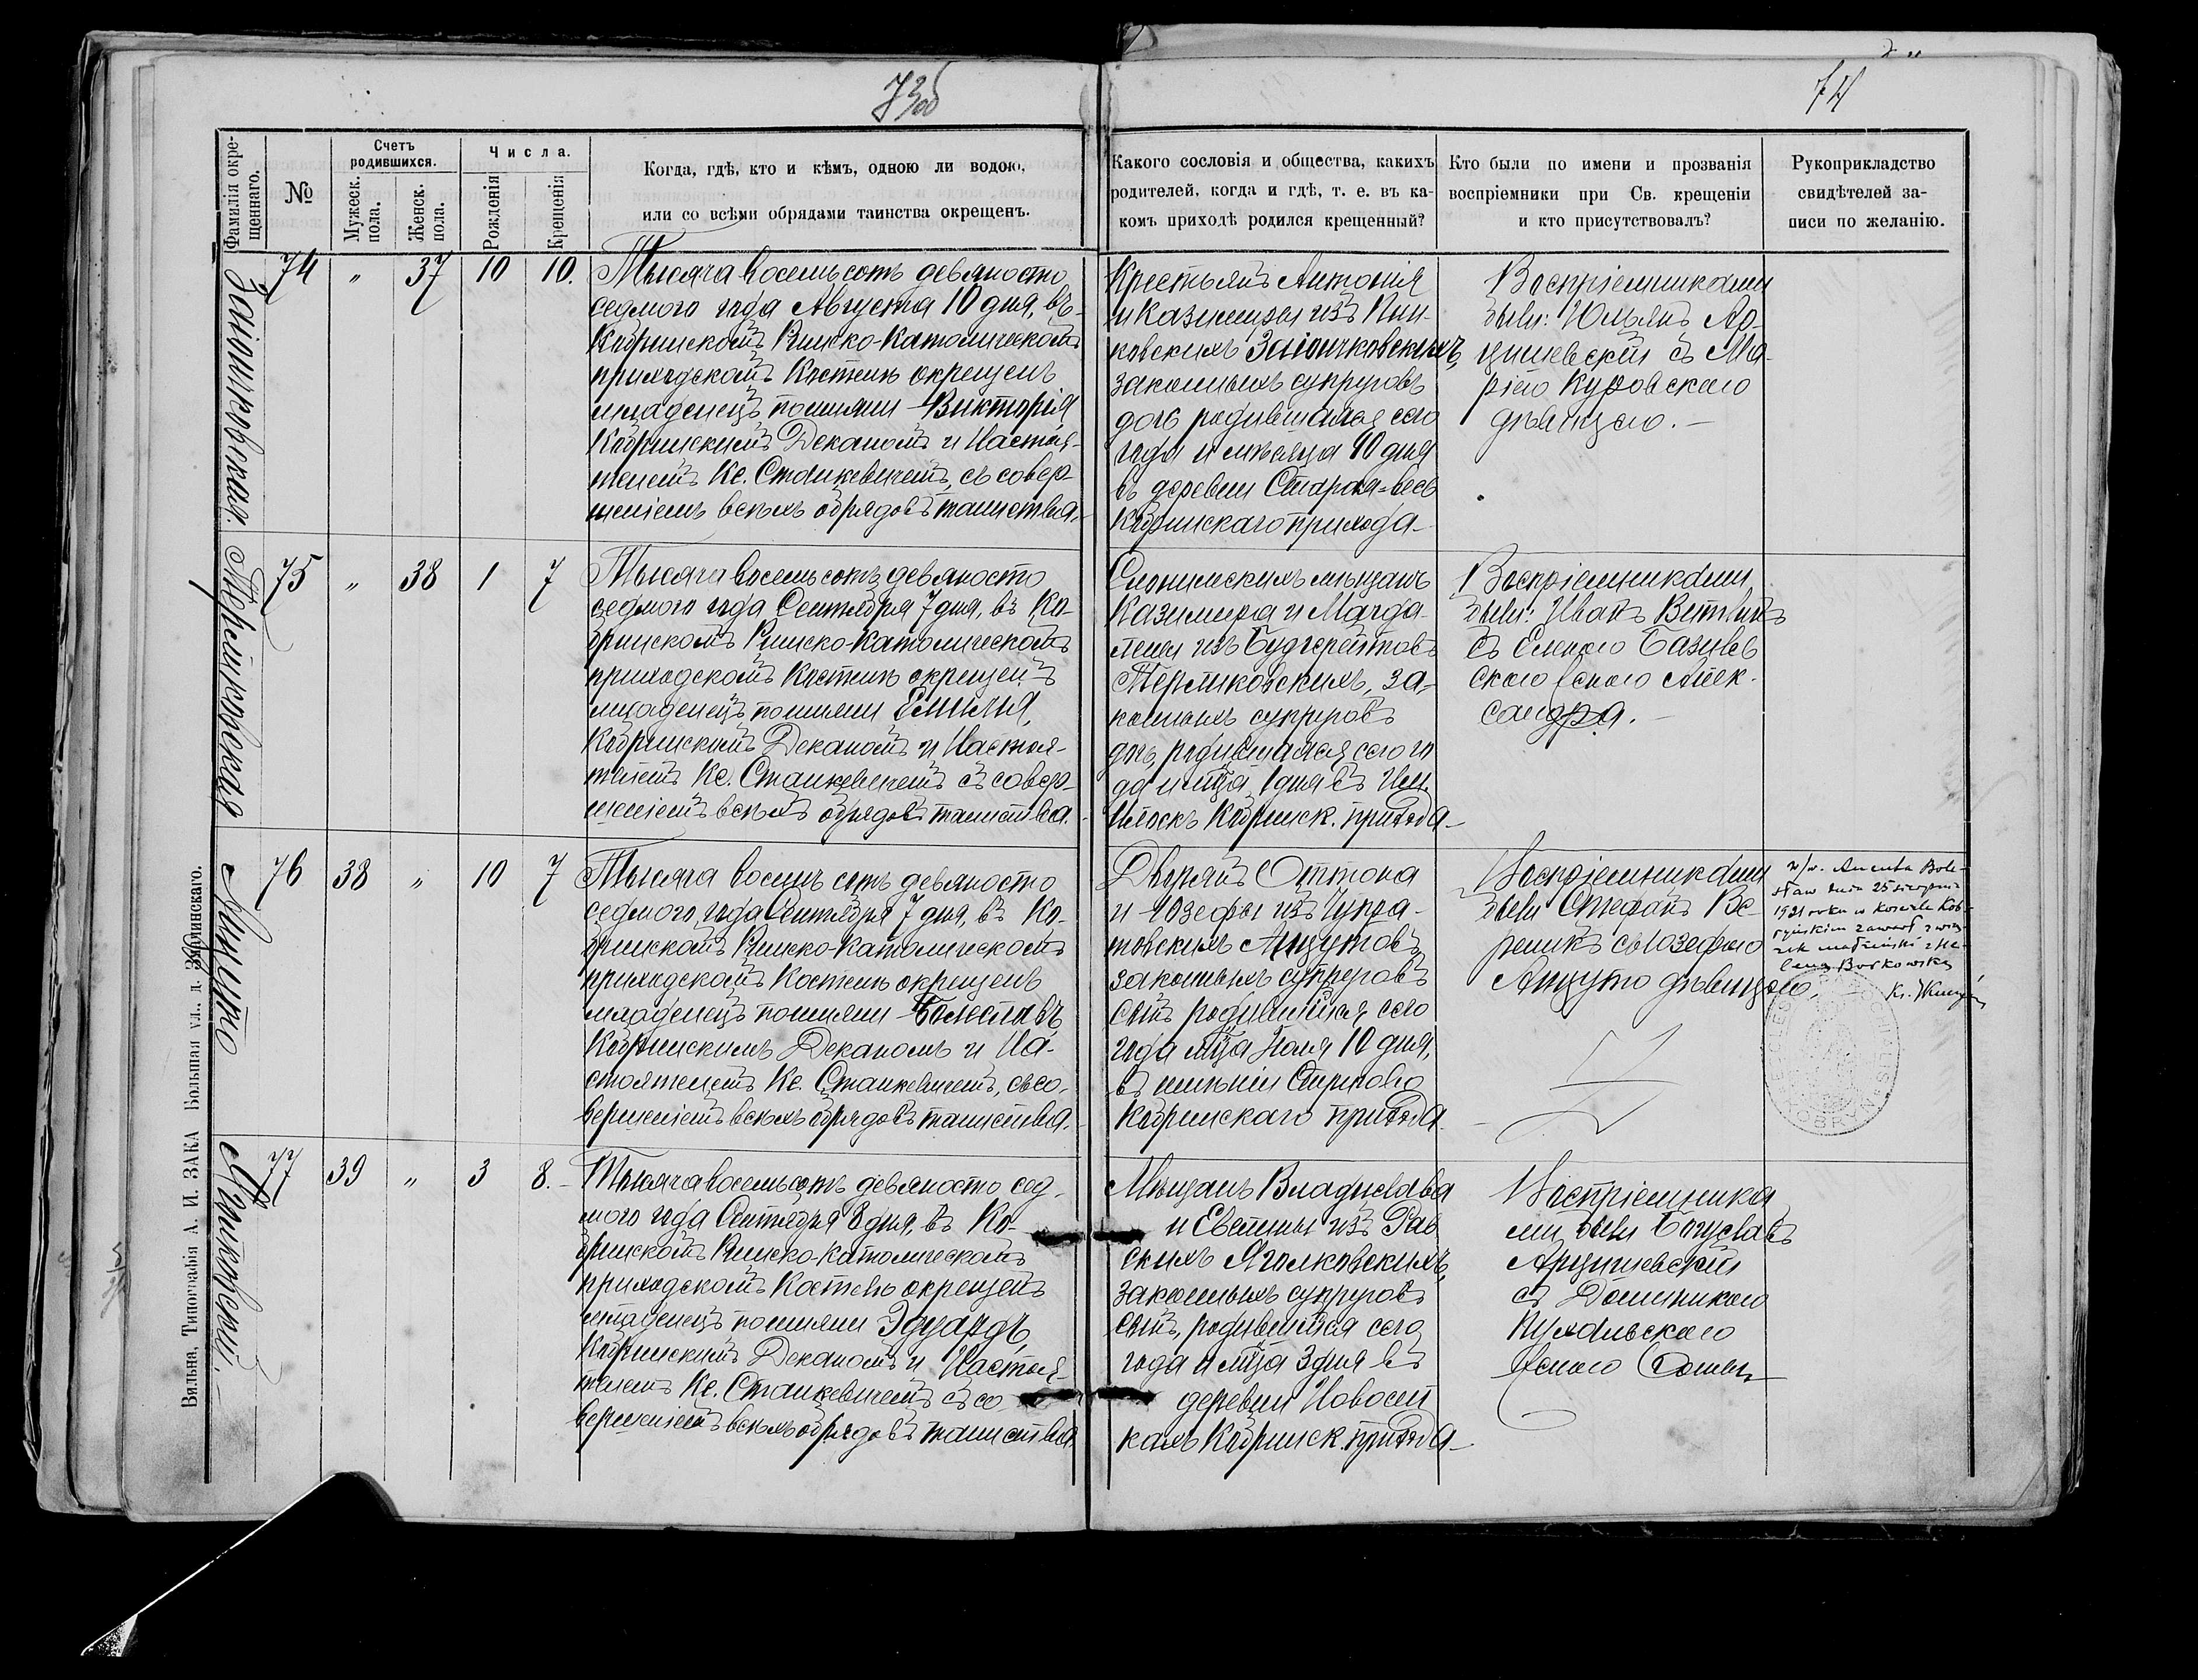 73об
74
Фамилія окрещеннаго.
№
Счетъ родившихся.
Мужеск. пола.
Женск. пола.
Числа.
Рожденія
Крещенія
Когда, гдѣ, кто и кѣмъ, одною ли водою,
или со всѣми обрядами таинства окрещенъ.
Какого сословія и общества, какихъ
родителей, когда и гдѣ, т. е. въ ка-
комъ приходѣ родился крещенный?
Кто были по имени и прозванія
воспріемники при Св. крещеніи
и кто присутствовалъ?
Рукоприкладство
свидѣтелей за-
писи по желанію.
74 " 37 10 10.
Тысяча восемьсотъ девяносто
седмого года Августа 10 дня, въ
Кобринскомъ Римско-Католическомъ
приходскомъ Костелѣ окрещенъ
младенецъ именемъ Викторія
Кобринскимъ Деканомъ и Настоя-
телемъ Кс. Станкевичемъ, съ совер-
шеніемъ всѣхъ обрядовъ таинства.
Крестьянъ Антонія
и Казимиры изъ Пин-
ковскихъ Заіончковскихъ,
законныхъ супруговъ
дочь родившаяся сего
года и мѣсяца 10 дня
въ деревни Старая-весь
Кобринскаго прихода
Воспріемниками
были: Юльянъ Ар-
цишевскій съ Ма-
ріею Куровскою
дѣвицею.
Терликовская
75 " 38 1 7
Тысяча восемьсотъ девяносто
седмого года Сентября 7 дня, въ Ко-
бринскомъ Римско-Католическомъ
приходскомъ Костелѣ окрещенъ
младенецъ именемъ Емилія,
Кобринскимъ Деканомъ и Настоя-
телемъ Кс. Станкевичемъ съ совер-
шеніемъ всѣхъ обрядовъ таинства.
Слонимскихъ мѣщанъ
Казимира и Магда-
лены изъ
Терликовскихъ, за-
конныхъ супруговъ
дочь, родившаяся сего го
да и мца 1 дня въ
Кобринск. прихода
Воспріемниками
были: Иванъ
съ Еленою
скою женою Алек-
сандра.
Анцуто
76 38 " 10 7
Тысяча восемь сотъ девяносто
седмого года Сентября 7 дня, въ Ко-
бринскомъ Римско-Католическомъ
приходскомъ Костелѣ окрещенъ
младенецъ именемъ Болеславъ
Кобринскимъ Деканомъ и На-
стоятелемъ Кс. Станкевичемъ, съ со-
вершеніемъ всѣхъ обрядовъ таинства.
Дворянъ Оттона
и Юзефы изъ
Анцутовъ
законныхъ супруговъ
сынъ родившійся сего
года мца Іюля 10 дня,
въ имѣніи
Кобринскаго прихода
Воспріемниками
были Стефанъ Ве-
реникъ съ Юзефою
Анцуто дѣвицею.
w/w. Ancuta Bole-
sław dnia 25 sierpnia
1921 roku w kościele Kob-
ryńskim zawarł zwią-
zek małżeński z He-
leną Borkowską
77 39 " 3 8.
Тысяча восемьсотъ девяносто сед-
мого года Сентября 8 дня, въ Ко-
бринскомъ Римско-Католическомъ
приходскомъ Костелѣ окрещенъ
младенецъ именемъ Эдуардъ,
Кобринскимъ Деканомъ и Настоя-
телемъ Кс. Станкевичемъ съ со-
вершеніемъ всѣхъ обрядовъ таинства
Мѣщанъ Владислава
и изъ Рав
скихъ Яголковскихъ,
законныхъ супруговъ
сынъ, родившійся сего
года и мца 3 дня въ
деревни Новосел
кахъ Кобринск. прихода
Воспріемника
ми были Богуславъ
Арцишевскій
съ Доминикою
женою
Вильна, Типографія А. И. ЗАКА Большая ул.,